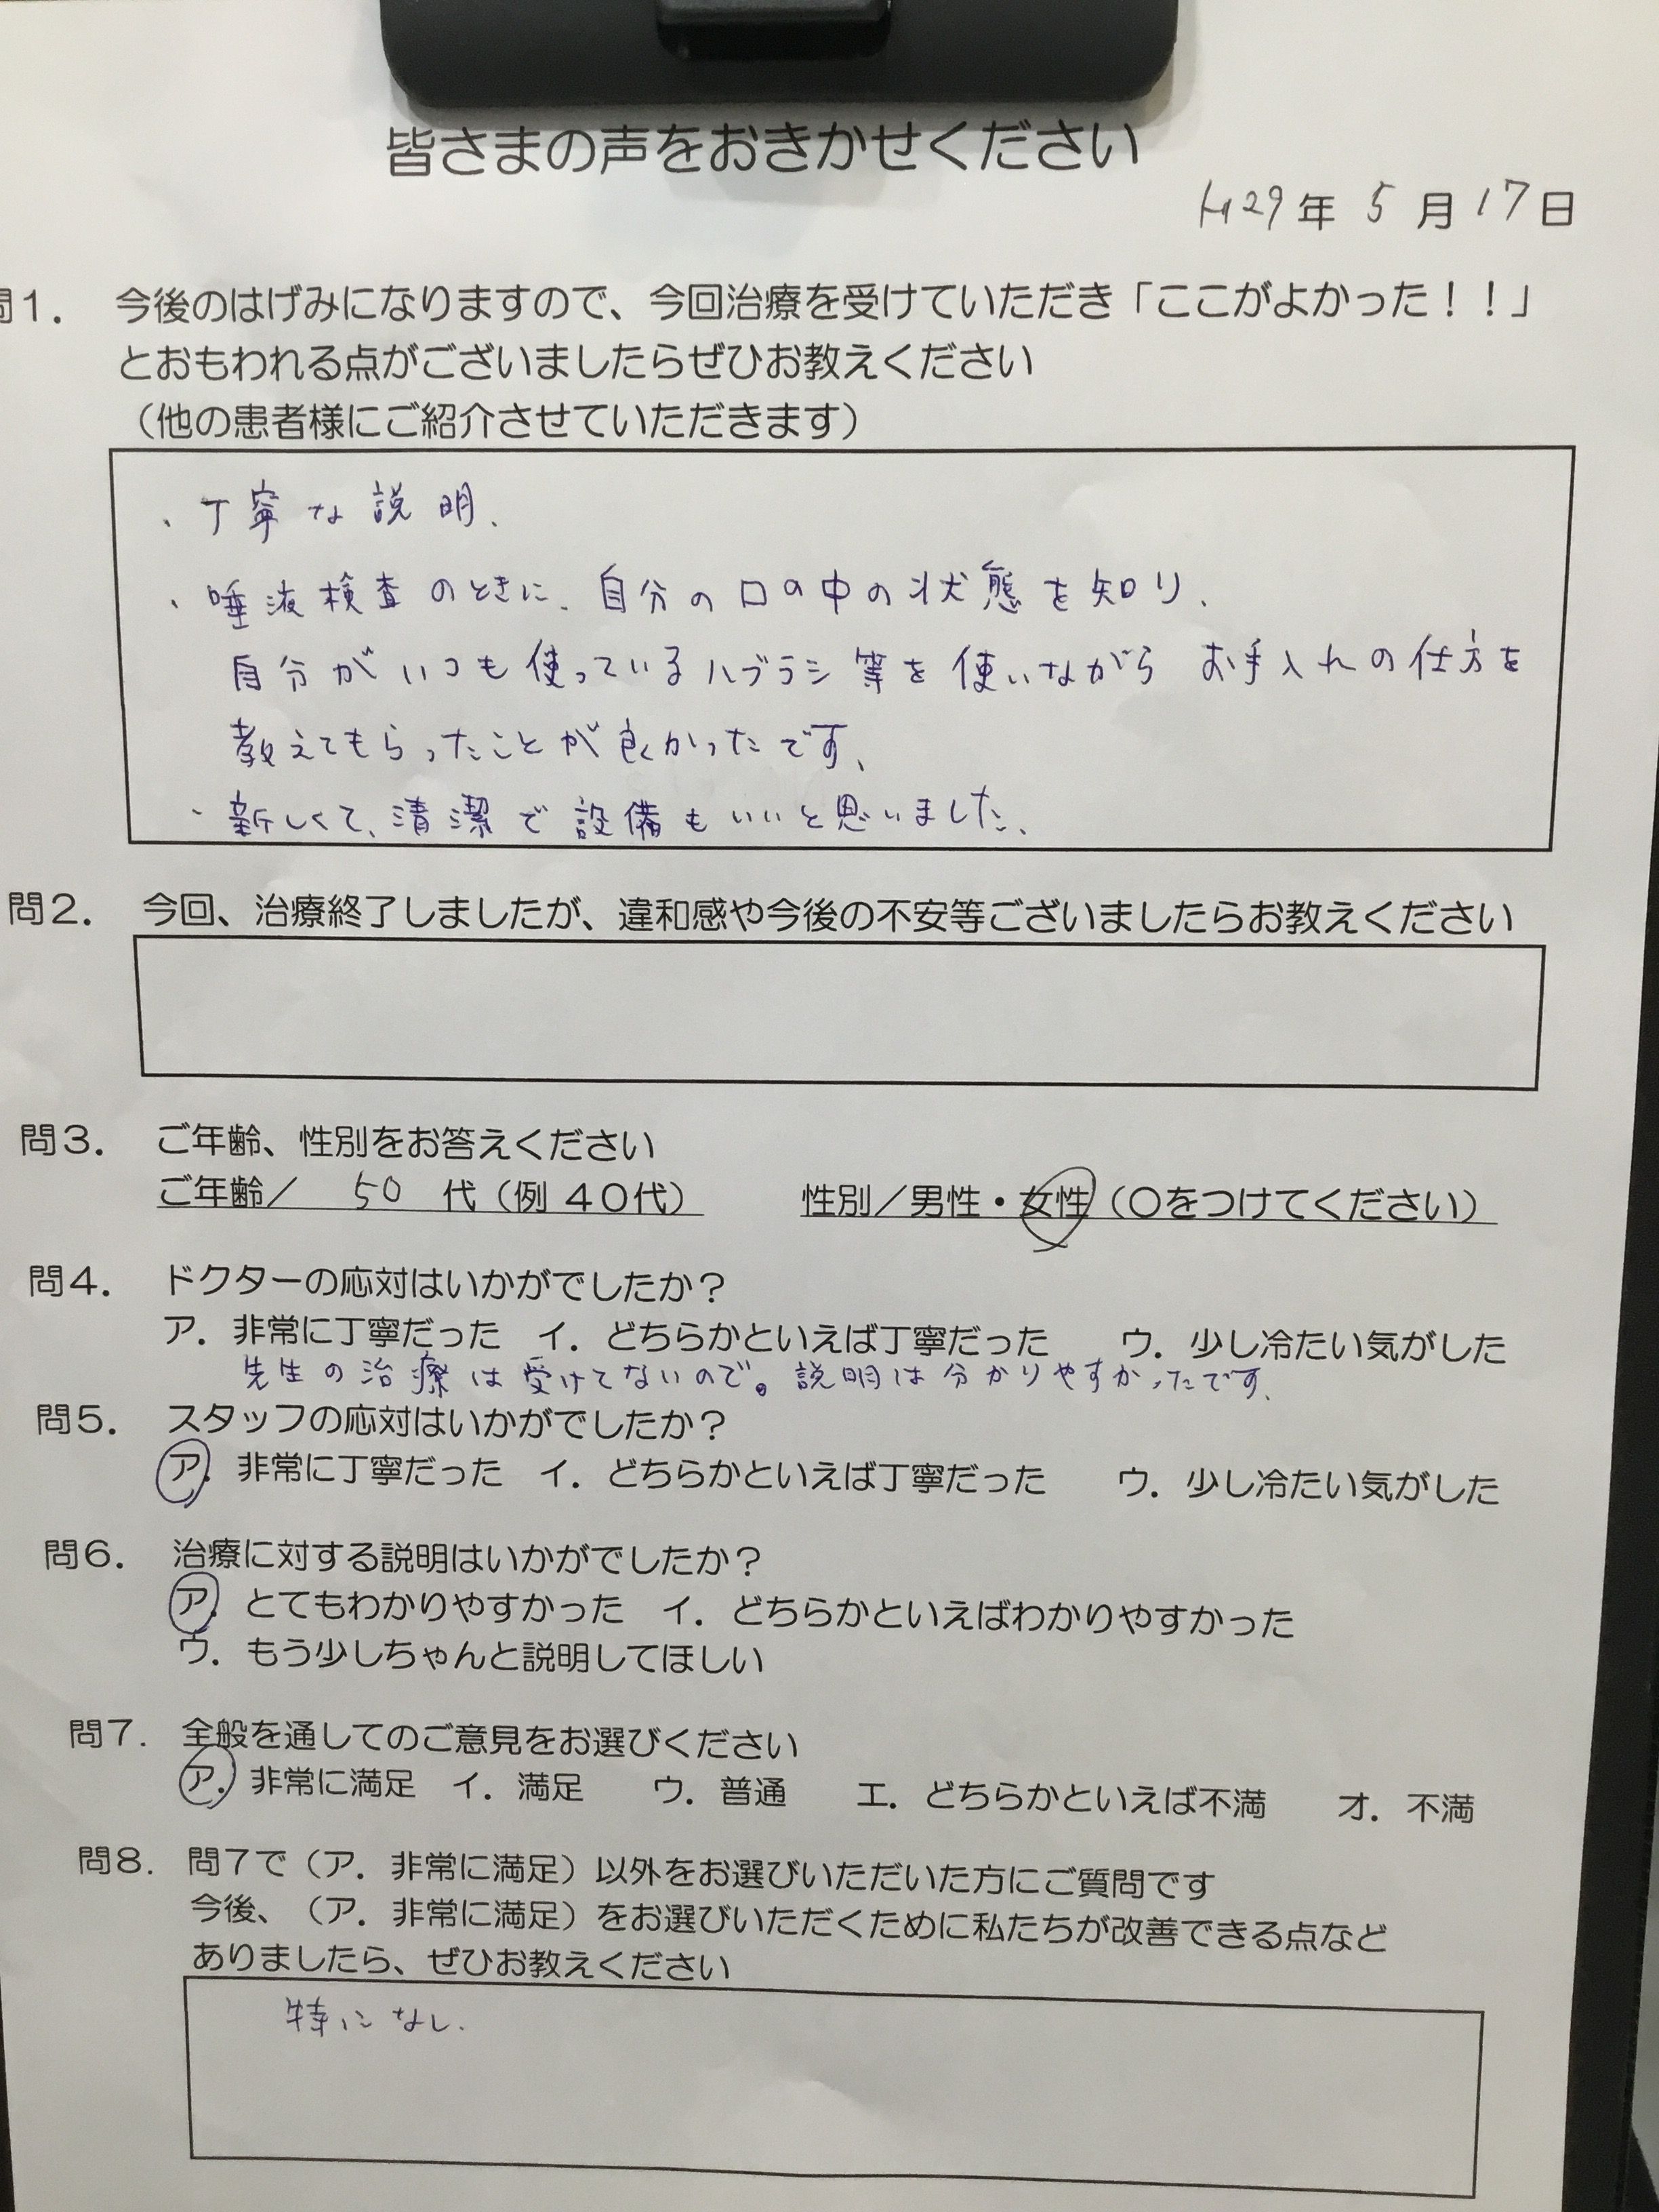 皆さまの声をおきかせください
H29年 5月17日
問1. 今後のはげみになりますので、今回治療を受けていただき「ここがよかった!!」
とおもわれる点がございましたらぜひお教えください
(他の患者様にご紹介させていただきます)
・丁寧な説明、
・唾液検査のときに、自分の口の中の状態を知り、
自分がいつも使っているハブラシ等を使いながら お手入れの仕方を
教えてもらったことが良かったです、
・新しくて、清潔で設備もいいと思いました、
問2. 今回、治療終了しましたが、違和感や今後の不安等ございましたらお教えください
問3. ご年齢、性別をお答えください
ご年齢/ 50 代(例 40代) 性別/男性・女性(○をつけてください)
問4. ドクターの応対はいかがでしたか?
ア. 非常に丁寧だった イ. どちらかといえば丁寧だった ウ. 少し冷たい気がした
先生の治療は受けてないので。説明は分かりやすかったです、
問5. スタッフの応対はいかがでしたか?
ア. 非常に丁寧だった イ. どちらかといえば丁寧だった ウ. 少し冷たい気がした
問6. 治療に対する説明はいかがでしたか?
ア. とてもわかりやすかった イ. どちらかといえばわかりやすかった
ウ. もう少しちゃんと説明してほしい
問7. 全般を通してのご意見をお選びください
ア. 非常に満足 イ. 満足 ウ. 普通 エ. どちらかといえば不満 オ. 不満
問8. 問7で(ア. 非常に満足)以外をお選びいただいた方にご質問です
今後、(ア. 非常に満足)をお選びいただくために私たちが改善できる点など
ありましたら、ぜひお教えください
特になし、